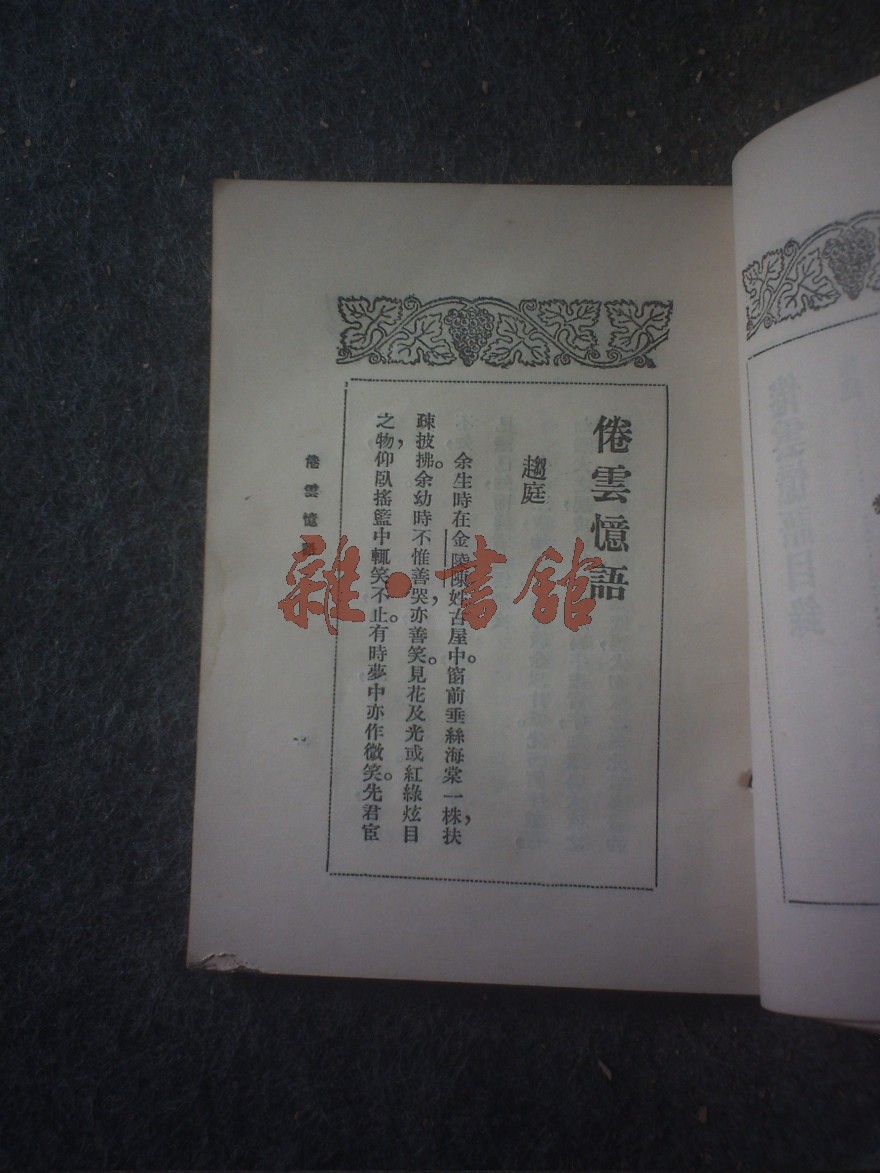 倦雲憶語
趨庭
余生時在金陵陳姓古屋中。窗前垂絲海棠一株，扶
疎披拂。余幼時不惟善哭，亦善笑。見花及光或紅綠炫目
之物，仰臥搖籃中輒笑不止。有時夢中亦作微笑。先君宦
倦雲憶語
雜·書館